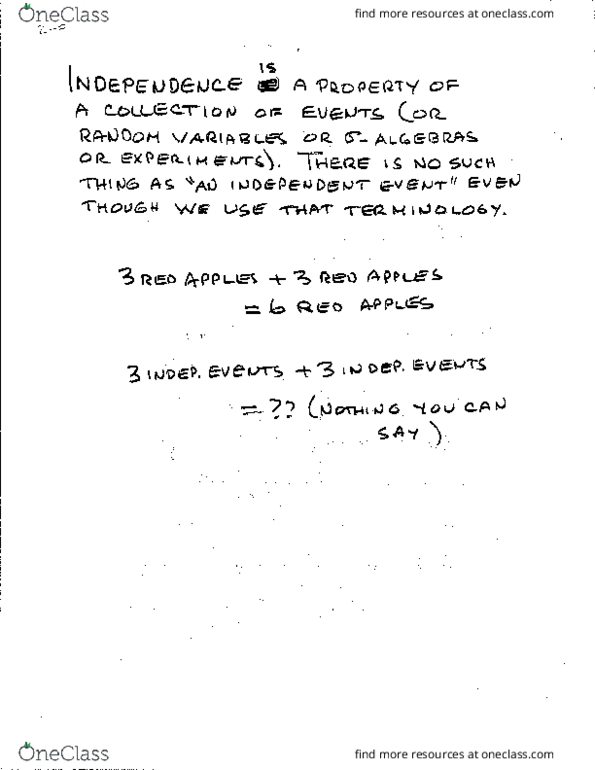 OneClass
find more resources at oneclass.com
INDEPENDENCE IS A PROPERTY OF
A COLLECTION OF EVENTS (OR
RANDOM VARIABLES OR σ-ALGEBRAS
OR EXPERIMENTS). THERE IS NO SUCH
THING AS "AN INDEPENDENT EVENT" EVEN
THOUGH WE USE THAT TERMINOLOGY.
3 RED APPLES + 3 RED APPLES
= 6 RED APPLES
3 INDEP. EVENTS + 3 INDEP. EVENTS
= ?? (NOTHING YOU CAN
SAY)
OneClass
find more resources at oneclass.com